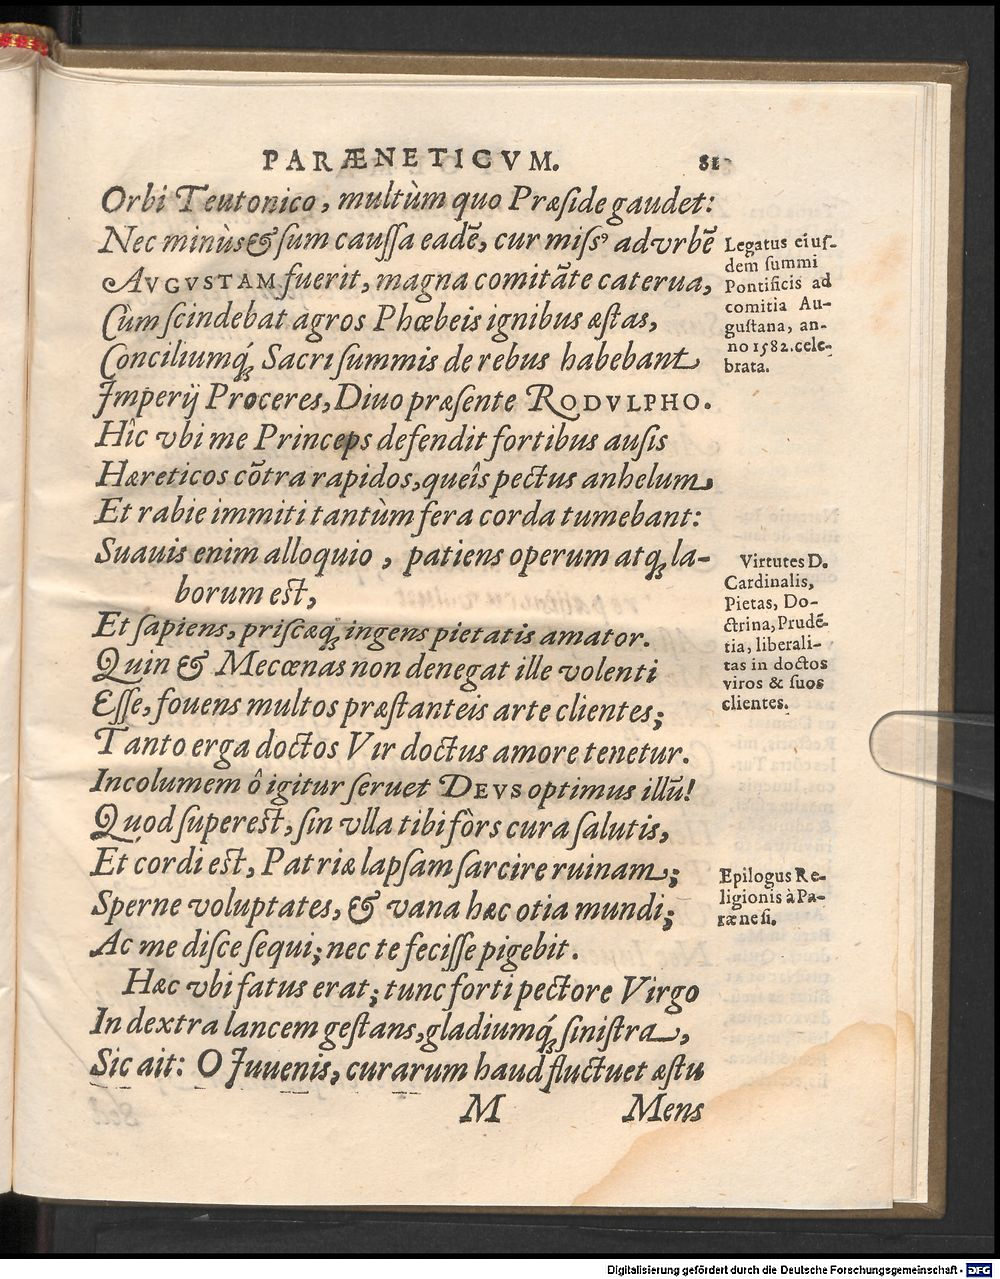 PARÆNETICVM. 81
Orbi Teutonico, multùm quo Præside gaudet:
Nec minùs & sum caussa eadē, cur missꝰ ad vrbē
AVGVSTAM fuerit, magna comitāte caterua,
Cùm scindebat agros Phœbeis ignibus æstas,
Conciliumq́; Sacri summis de rebus habebant
Imperij Proceres, Diuo præsente RODVLPHO.
Hîc vbi me Princeps defendit fortibus ausis
Hæreticos cōtra rapidos, queîs pectus anhelum
Et rabie immiti tantùm fera corda tumebant:
Suauis enim alloquio, patiens operum atq; la-
borum est,
Et sapiens, priscæq; ingens pietatis amator.
Quin & Mecœnas non denegat ille volenti
Esse, fouens multos præstanteis arte clientes;
Tanto erga doctos Vir doctus amore tenetur.
Incolumem ô igitur seruet DEVS optimus illū!
Quod superest, sin vlla tibi fòrs cura salutis,
Et cordi est, Patriæ lapsam sarcire ruinam;
Sperne voluptates, & vana hæc otia mundi;
Ac me disce sequi; nec te fecisse pigebit.
Hæc vbi fatus erat; tunc forti pectore Virgo
In dextra lancem gestans, gladiumq́; sinistra,
Sic ait: O Juuenis, curarum haud fluctuet æstu
M Mens
Legatus eius-
dem summi
Pontificis ad
comitia Au-
gustana, an-
no 1582. cele-
brata.
Virtutes D.
Cardinalis,
Pietas, Do-
ctrina, Prudē-
tia, liberali-
tas in doctos
viros & suos
clientes.
Epilogus Re-
ligionis à Pa-
rænesi.
Digitalisierung gefördert durch die Deutsche Forschungsgemeinschaft - DFG